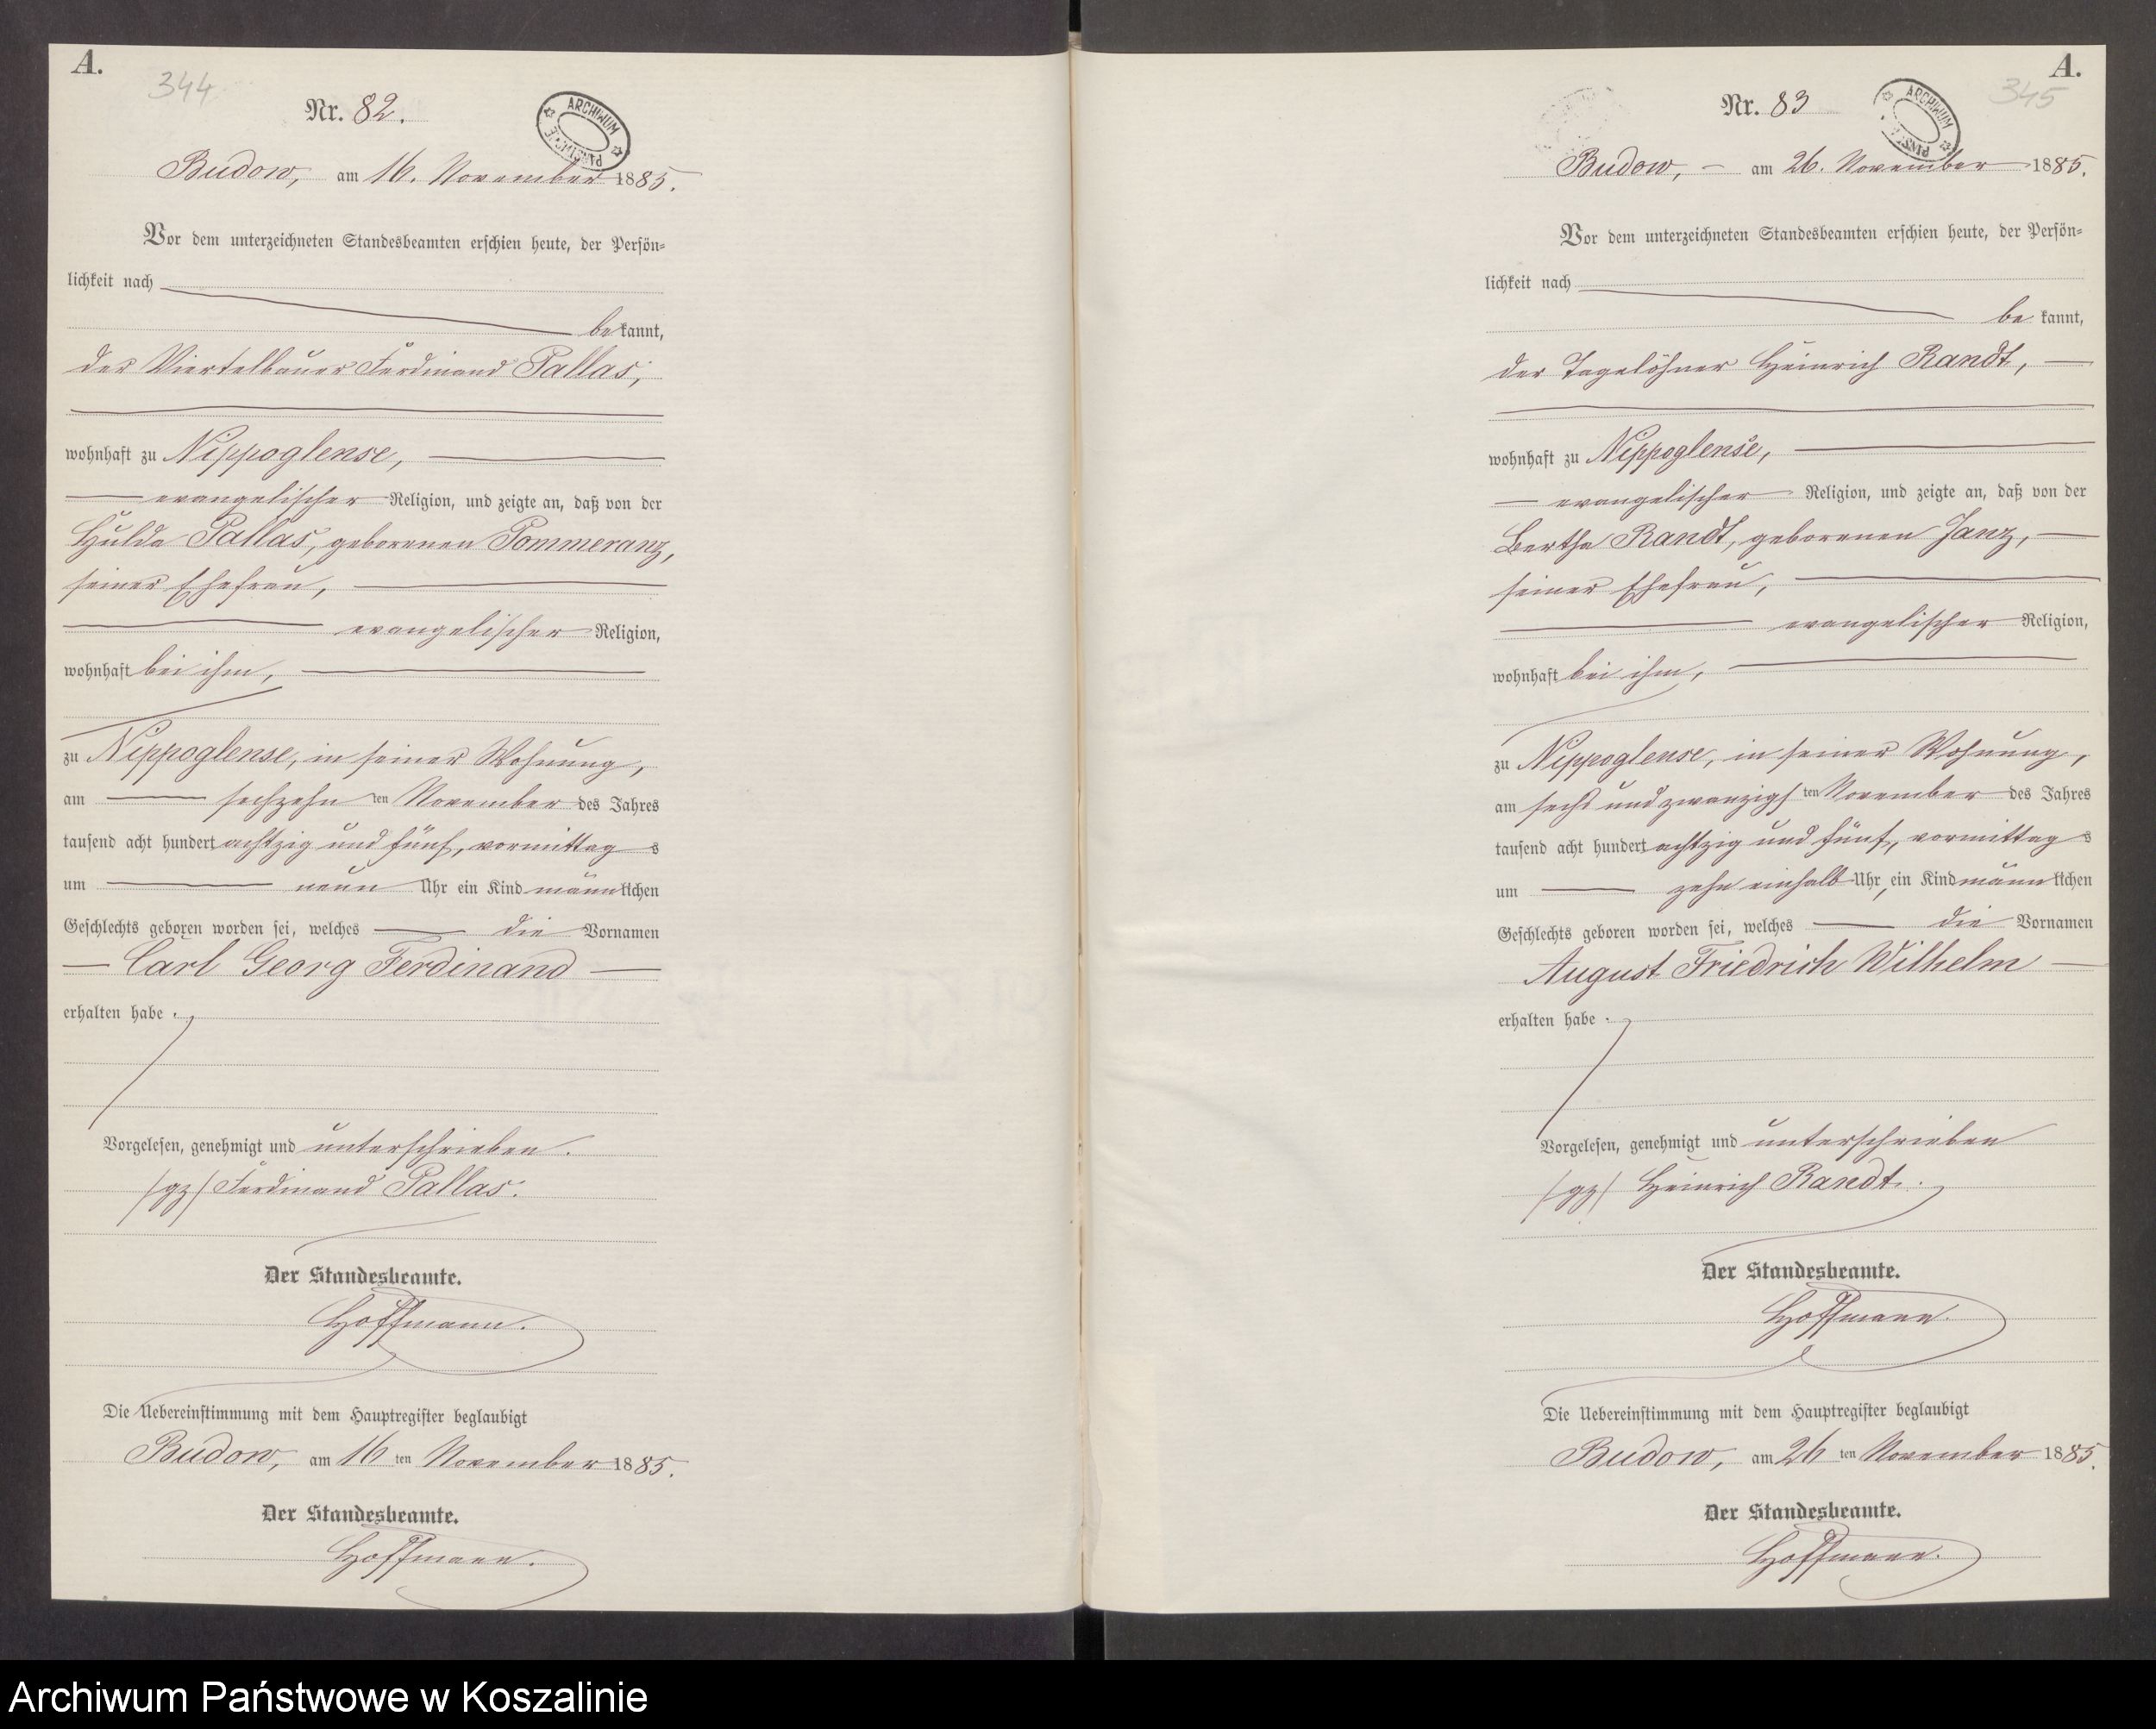 A.
344
Nr. 82.
ARCHIWUM PAŃSTWOWE
Budow, am 16. November 1885.
Vor dem unterzeichneten Standesbeamten erschien heute, der Persön-
lichkeit nach
bekannt,
der Viertelbauer Ferdinand Pallas,
wohnhaft zu Nippoglense,
evangelischer Religion, und zeigte an, daß von der
Hulda Pallas, geborenen Pommeranz,
seiner Ehefrau,
evangelischer Religion,
wohnhaft bei ihm,
zu Nippoglense, in seiner Wohnung,
am sechzehn ten November des Jahres
tausend acht hundert achtzig und fünf, vormittag s
um neun Uhr ein Kind männlichen
Geschlechts geboren worden sei, welches die Vornamen
Carl Georg Ferdinand
erhalten habe.
Vorgelesen, genehmigt und unterschrieben.
/gz/ Ferdinand Pallas.
Der Standesbeamte.
Hoffmann.
Die Uebereinstimmung mit dem Hauptregister beglaubigt
Budow, am 16 ten November 1885.
Der Standesbeamte.
Hoffmann.
A.
345
Nr. 83
ARCHIWUM
Budow, am 26. November 1885.
Vor dem unterzeichneten Standesbeamten erschien heute, der Persön-
lichkeit nach
be kannt,
der Tagelöhner Heinrich Randt,
wohnhaft zu Nippoglense,
evangelischer Religion, und zeigte an, daß von der
Bertha Randt, geborenen Janz,
seiner Ehefrau,
evangelischer Religion,
wohnhaft bei ihm,
zu Nippoglense, in seiner Wohnung,
am sechs und zwanzigs ten November des Jahres
tausend acht hundert achtzig und fünf, vormittag s
um zehn einhalb Uhr, ein Kind männlichen
Geschlechts geboren worden sei, welches die Vornamen
August Friedrich Wilhelm
erhalten habe.
Vorgelesen, genehmigt und unterschrieben
/gz/ Heinrich Randt.
Der Standesbeamte.
Hoffmann.
Die Uebereinstimmung mit dem Hauptregister beglaubigt
Budow, am 26 ten November 1885.
Der Standesbeamte.
Hoffmann.
Archiwum Państwowe w Koszalinie